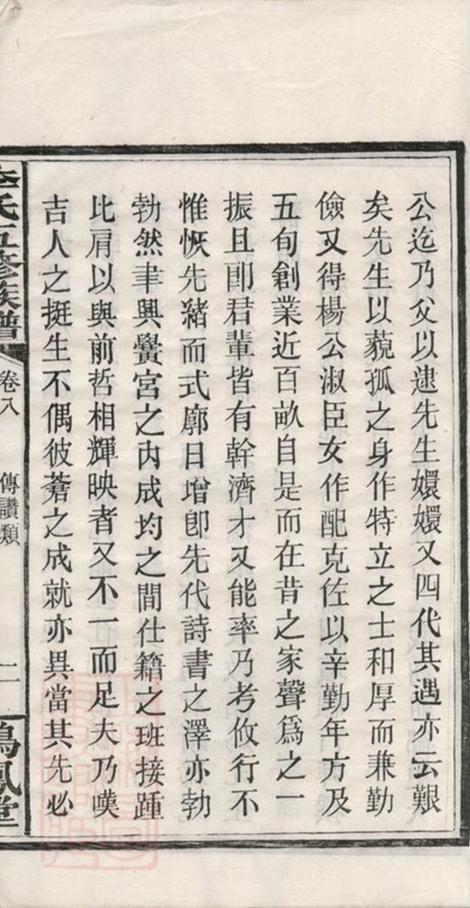 公迄乃父以逮先生嬛嬛又四代其遇亦云艱
矣先生以藐孤之身作特立之士和厚而兼勤
儉又得楊公淑臣女作配克佐以辛勤年方及
五旬創業近百畝自是而在昔之家聲爲之一
振且卽君輩皆有幹濟才又能率乃考攸行不
惟恢先猪而式廓日增卽先代詩書之澤亦勃
勃然聿興黌宮之內成均之間仕籍之班接踵
比肩以與前哲相輝映者又不一而足夫乃嘆
吉人之挺生不偶彼蒼之成就亦異當其先必
李氏五修族譜
卷八
傳讚類
二
鳴鳳堂